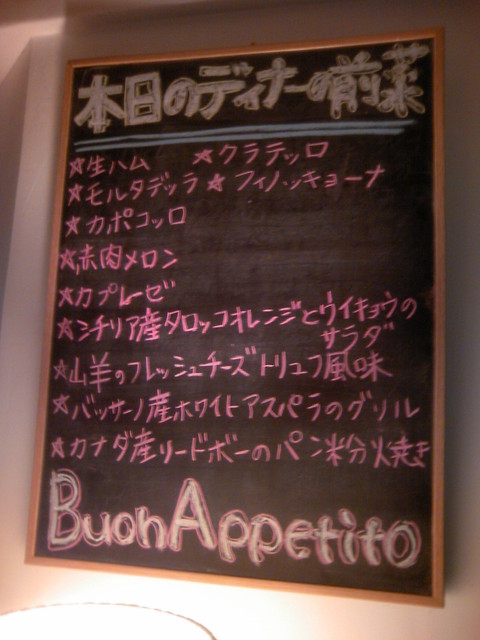 本日のディナーの前菜
☆生ハム ☆クラテッロ
☆モルタデッラ ☆フィノッキョーナ
☆カポコッロ
☆赤肉メロン
☆カプレーゼ
☆シチリア産タロッコオレンジとウイキョウの
サラダ
☆山羊のフレッシュチーズトリュフ風味
☆バッサーノ産ホワイトアスパラのグリル
☆カナダ産リードボーのパン粉焼き
Buon Appetito